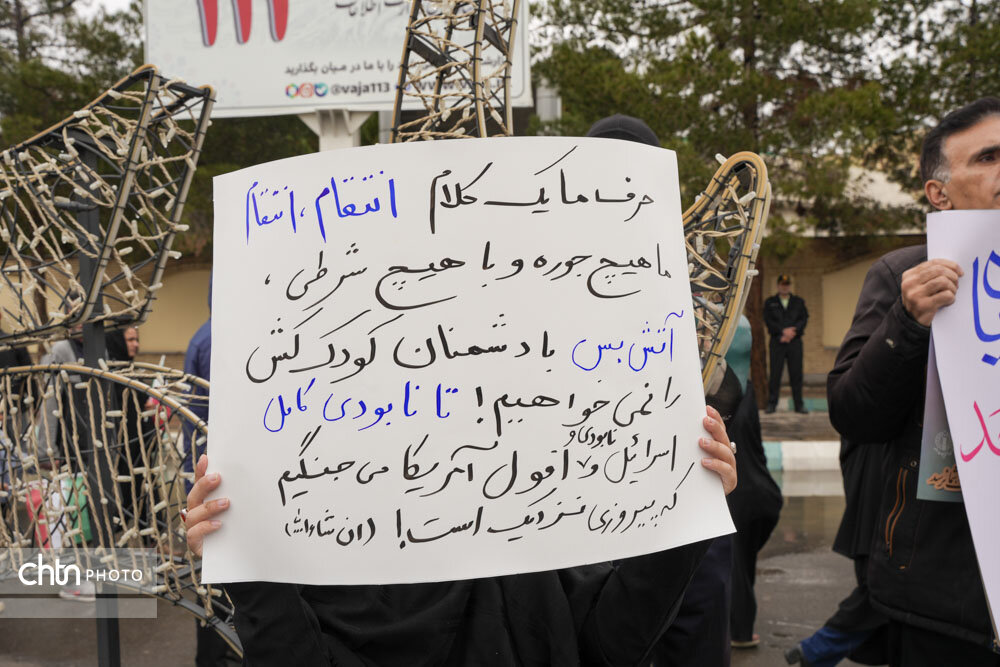 را با ما در میان بگذارید
@vaja113
حرف ما یک کلام انتقام، انتقام
ما هیچ جوره و با هیچ شرطی،
آتش بس با دشمنان کودک کش
را نمی خواهیم! تا نابودی کامل
اسرائیل و نابودی و افول آمریکا می جنگیم
که پیروزی نزدیک است! (ان شاءالله)
chtn PHOTO